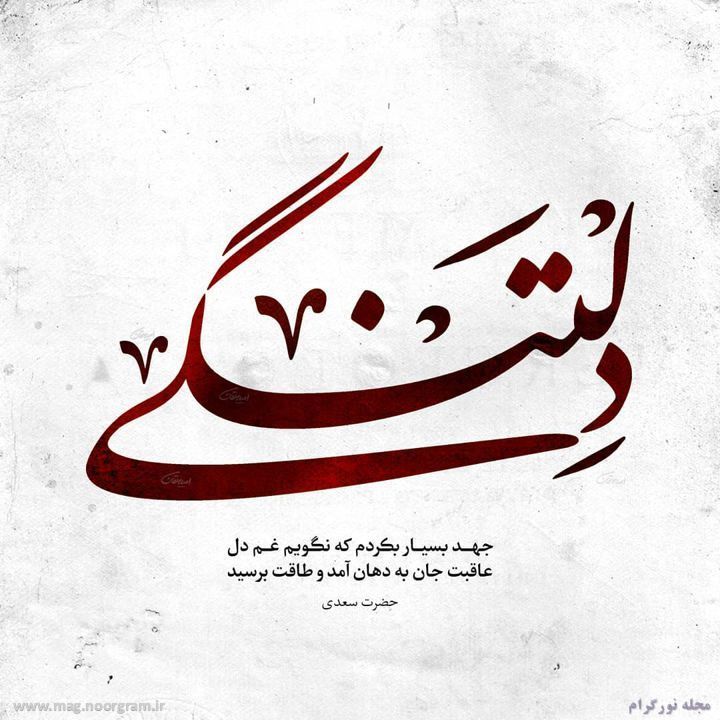 دِلتنگی
جهد بسیار بکردم که نگویم غم دل
عاقبت جان به دهان آمد و طاقت برسید
حضرت سعدی
www.mag.noorgram.ir
مجله نورگرام